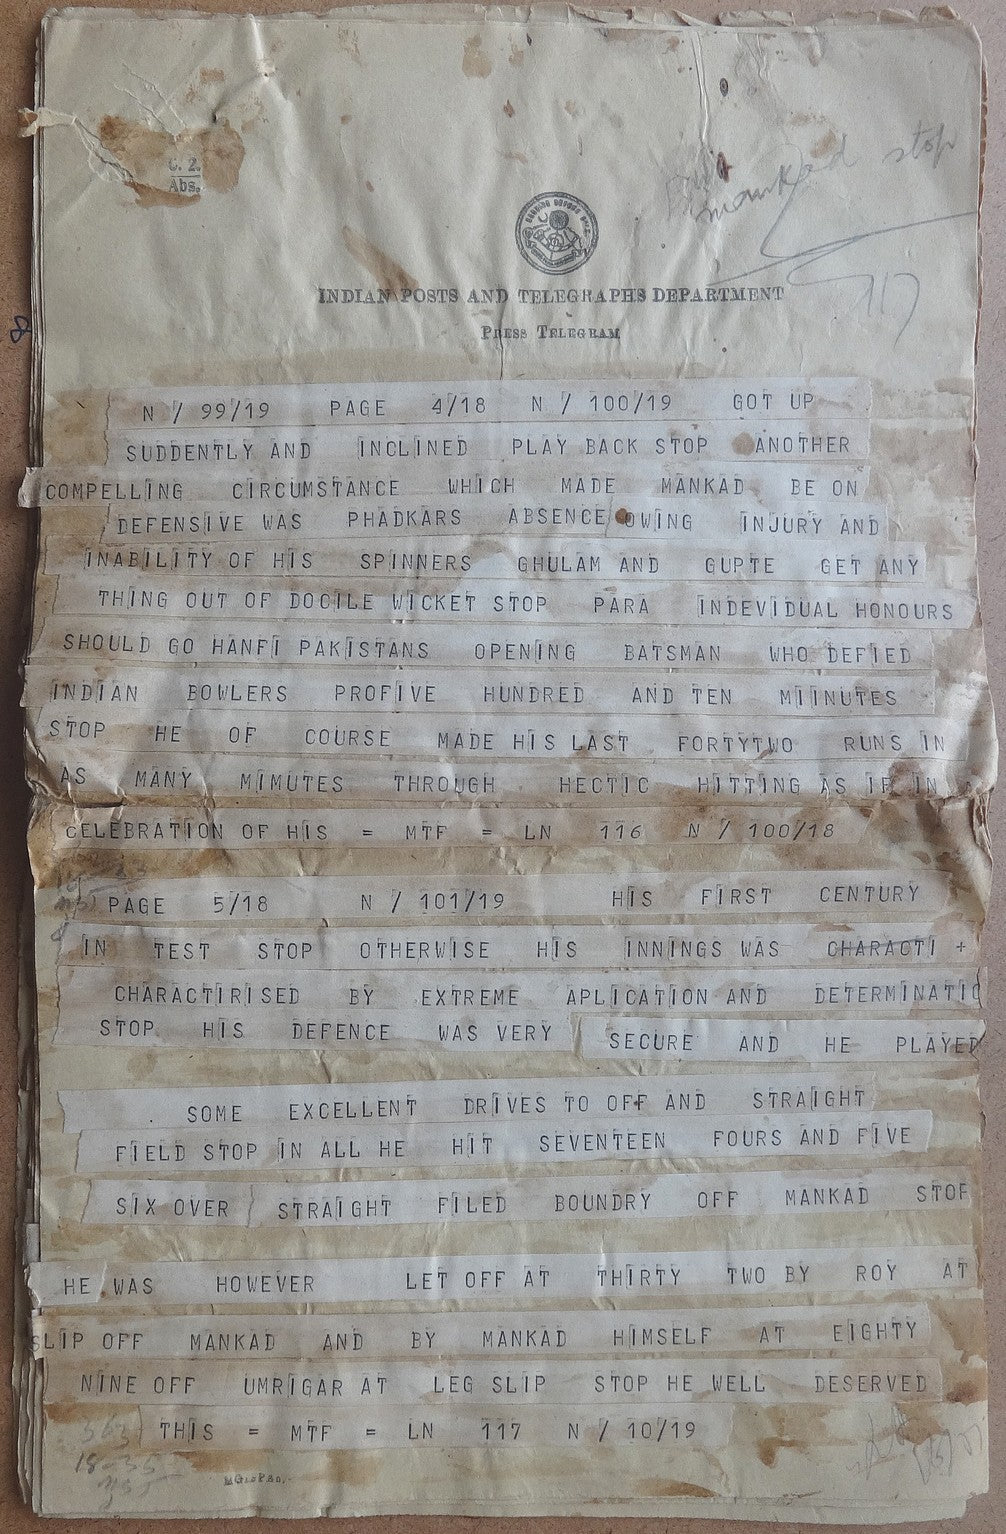 G. 2.
Abs.
mankad stop
INDIAN POSTS AND TELEGRAPHS DEPARTMENT
PRESS TELEGRAM
N / 99/19 PAGE 4/18 N / 100/19 GOT UP
SUDDENTLY AND INCLINED PLAY BACK STOP ANOTHER
COMPELLING CIRCUMSTANCE WHICH MADE MANKAD BE ON
DEFENSIVE WAS PHADKARS ABSENCE OWING INJURY AND
INABILITY OF HIS SPINNERS GHULAM AND GUPTE GET ANY
THING OUT OF DOCILE WICKET STOP PARA INDEVIDUAL HONOURS
SHOULD GO HANFI PAKISTANS OPENING BATSMAN WHO DEFIED
INDIAN BOWLERS PROFIVE HUNDRED AND TEN MIINUTES
STOP HE OF COURSE MADE HIS LAST FORTYTWO RUNS IN
AS MANY MIMUTES THROUGH HECTIC HITTING AS IF IN
CELEBRATION OF HIS = MTF = LN 116 N / 100/18
PAGE 5/18 N / 101/19 HIS FIRST CENTURY
IN TEST STOP OTHERWISE HIS INNINGS WAS CHARACTI +
CHARACTIRISED BY EXTREME APLICATION AND DETERMINATIO
STOP HIS DEFENCE WAS VERY SECURE AND HE PLAYED
SOME EXCELLENT DRIVES TO OFF AND STRAIGHT
FIELD STOP IN ALL HE HIT SEVENTEEN FOURS AND FIVE
SIX OVER STRAIGHT FILED BOUNDRY OFF MANKAD STOP
HE WAS HOWEVER LET OFF AT THIRTY TWO BY ROY AT
SLIP OFF MANKAD AND BY MANKAD HIMSELF AT EIGHTY
NINE OFF UMRIGAR AT LEG SLIP STOP HE WELL DESERVED
THIS = MTF = LN 117 N / 10/19
18-35